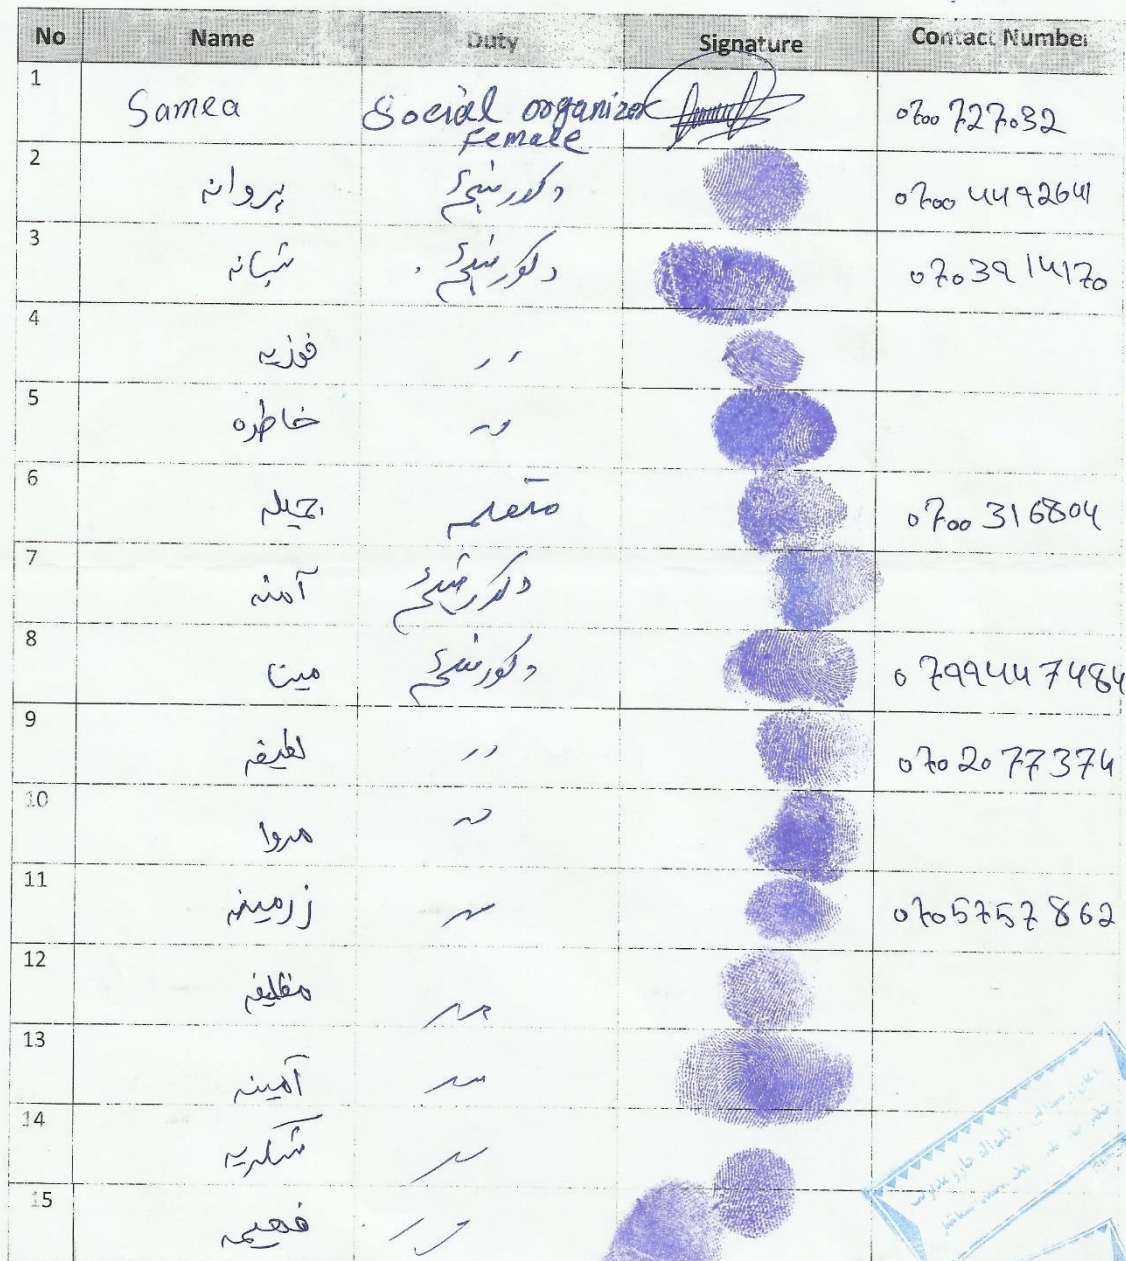 No Name Duty Signature Contact Number
1 Samea Social organizer Female 0700727032
2 پروانه د کور میرمنې 07004492641
3 شبانه د کور میرمنې 0703914170
4 فوزیه 〃
5 خاطره 〃
6 جمیله متعلمه 0700316804
7 آمنه د کور میرمنې
8 مینا د کور میرمنې 0799447484
9 لطیفه 〃 0702077374
10 مروا 〃
11 زرمینه 〃 0705757862
12 〃
13 آمینه 〃
14 شکریه 〃
15 فهیمه 〃